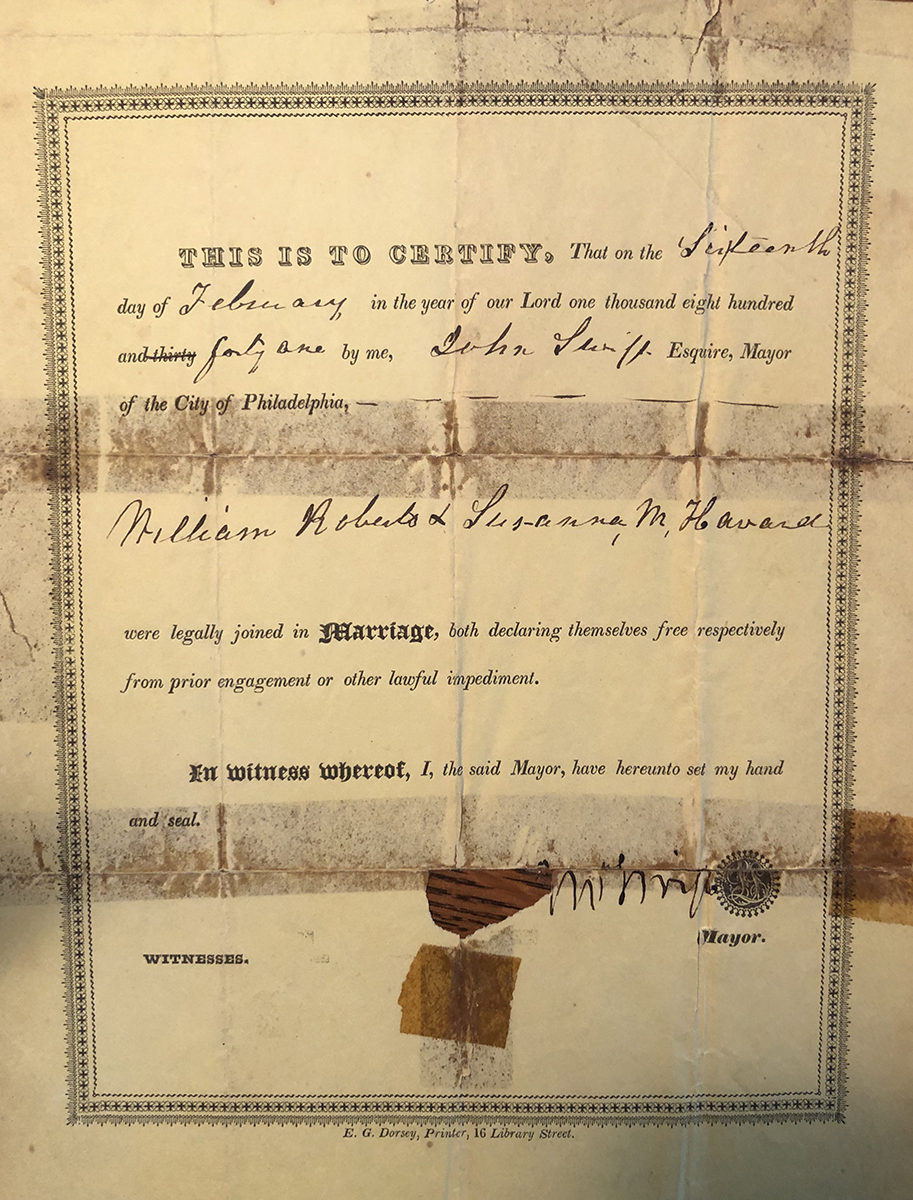 THIS IS TO CERTIFY, That on the Sixteenth
day of February in the year of our Lord one thousand eight hundred
and thirty forty one by me, John Swift Esquire, Mayor
of the City of Philadelphia, —
William Roberts & Susanna, M, Havard
were legally joined in Marriage, both declaring themselves free respectively
from prior engagement or other lawful impediment.
In witness whereof, I, the said Mayor, have hereunto set my hand
and seal.
Swift
Mayor.
WITNESSES.
E. G. Dorsey, Printer, 16 Library Street.